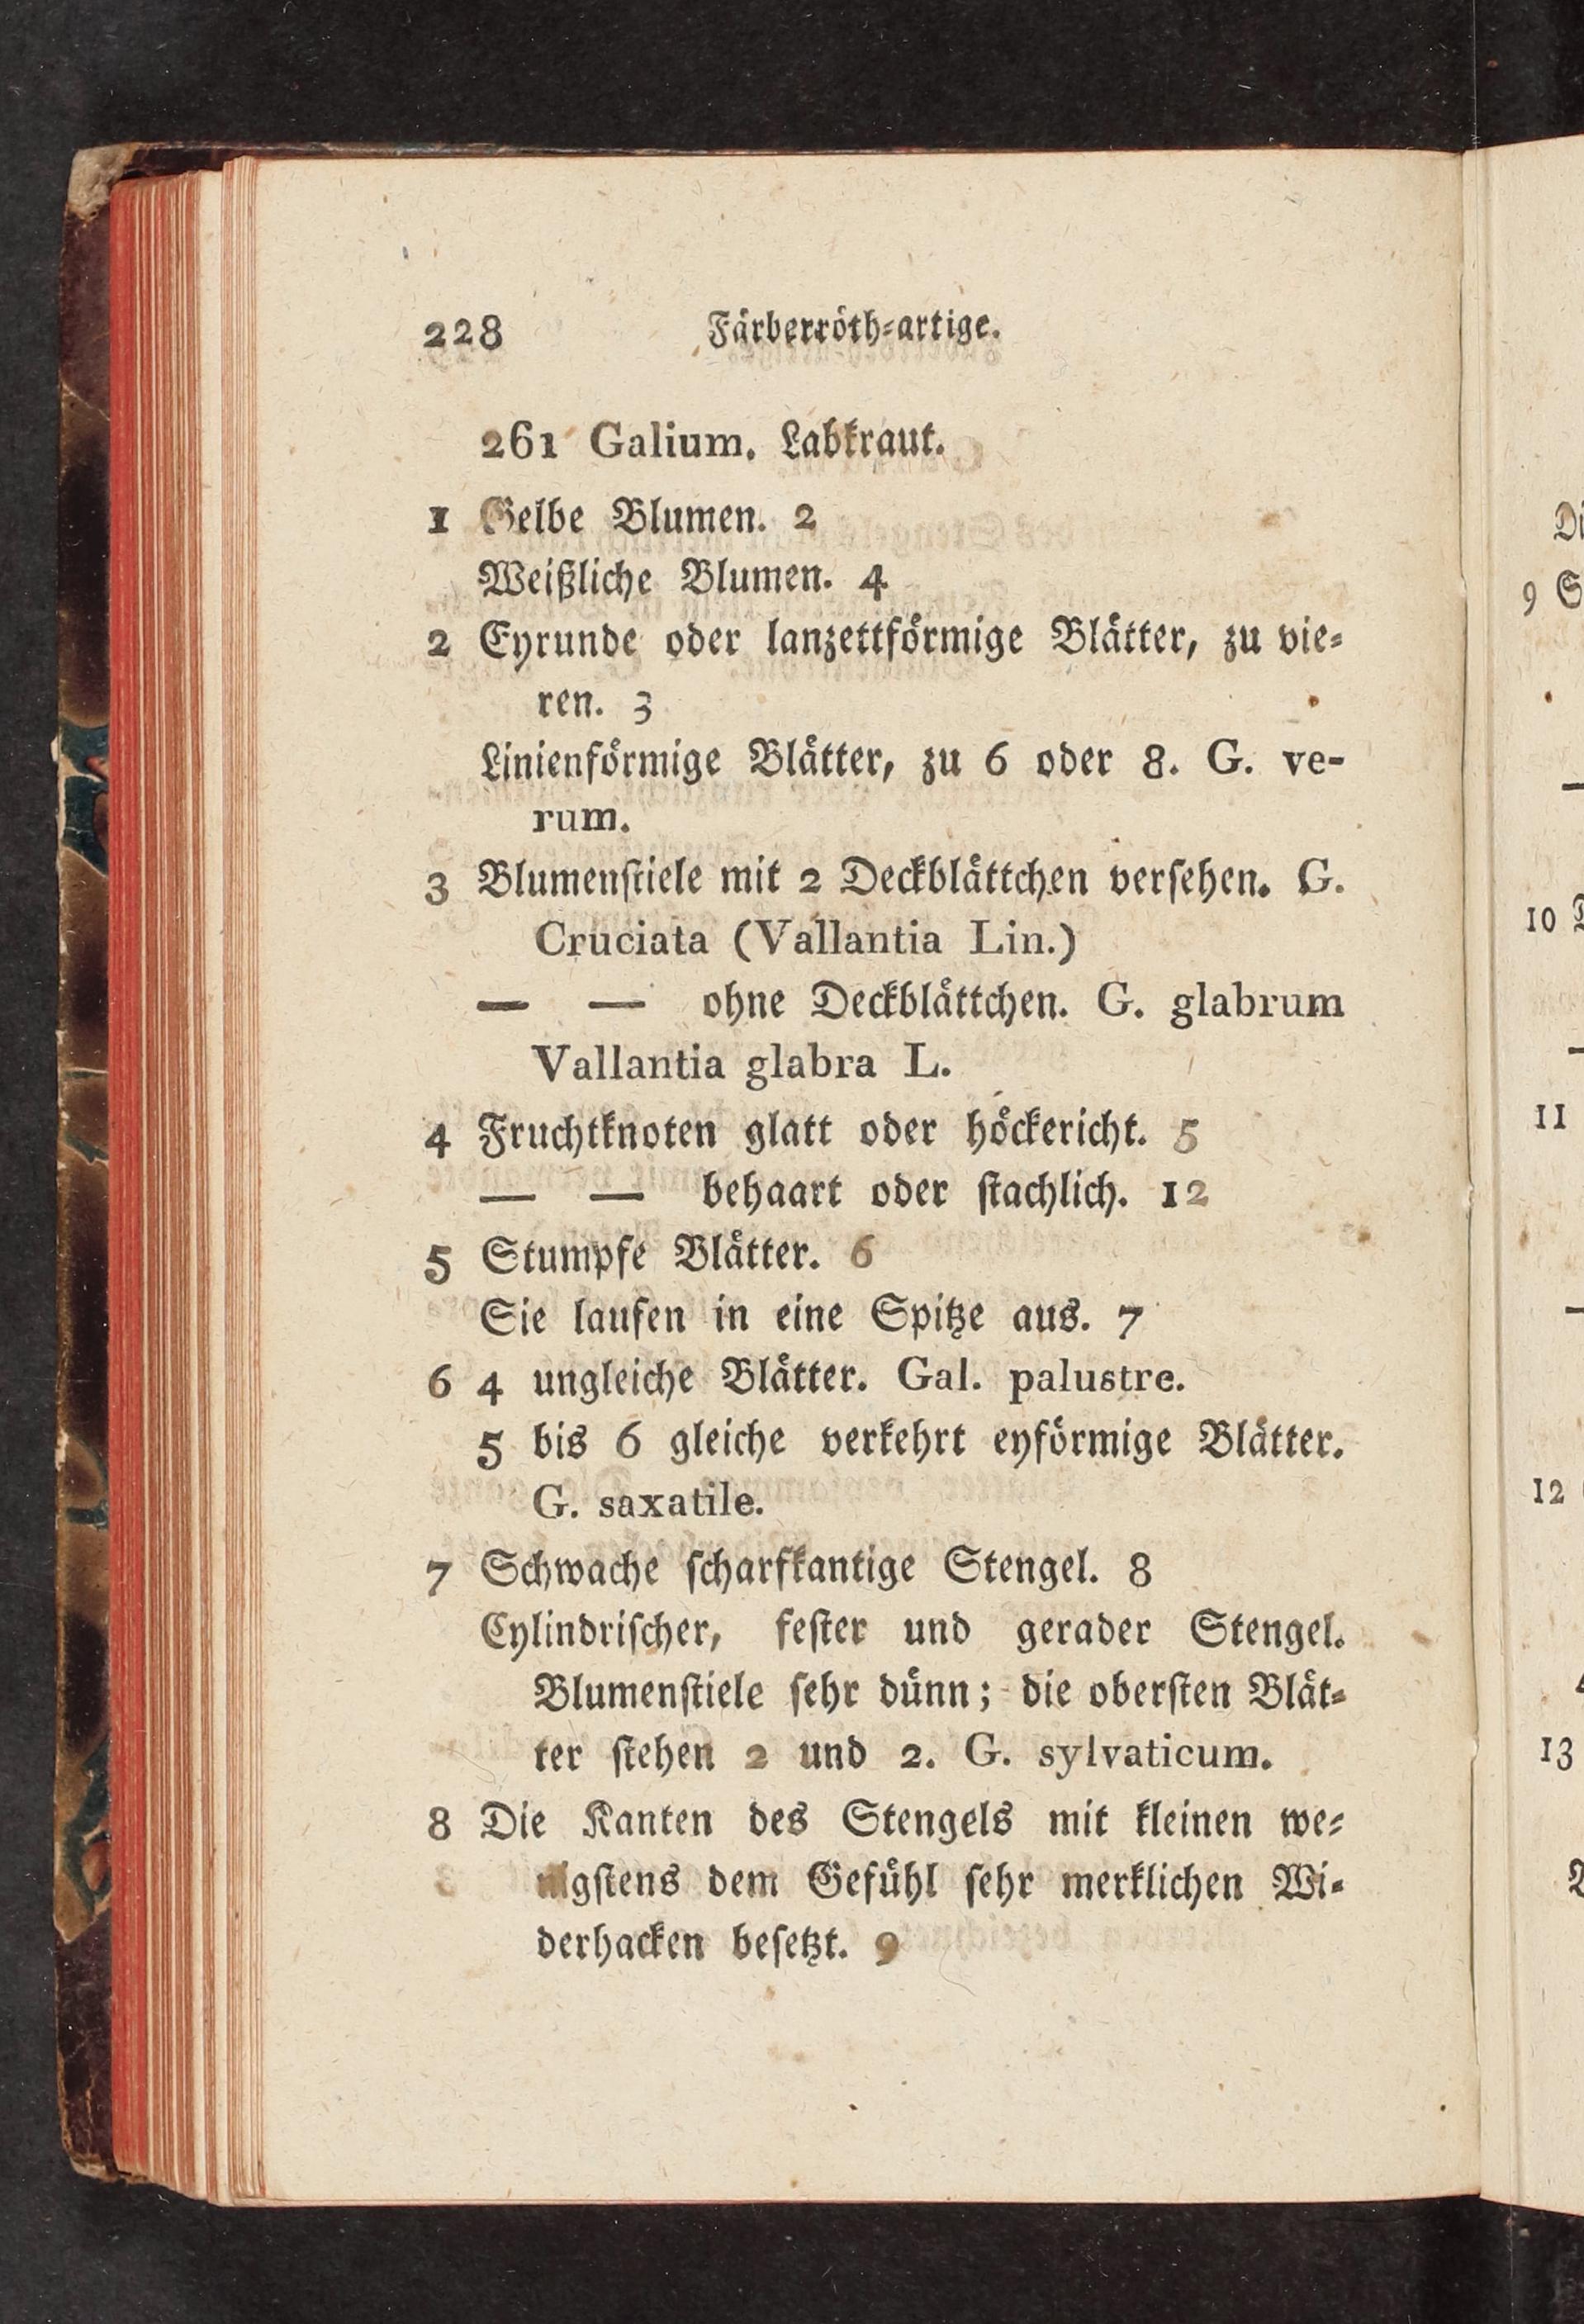 228 Färberröth-artige.
261 Galium. Labkraut.
1 Gelbe Blumen. 2
Weißliche Blumen. 4
2 Eyrunde oder lanzettförmige Blätter, zu vie-
ren. 3
Linienförmige Blätter, zu 6 oder 8. G. ve-
rum.
3 Blumenstiele mit 2 Deckblättchen versehen. G.
Cruciata (Vallantia Lin.)
— — ohne Deckblättchen. G. glabrum
Vallantia glabra L.
4 Fruchtknoten glatt oder höckericht. 5
— — behaart oder stachlich. 12
5 Stumpfe Blätter. 6
Sie laufen in eine Spitze aus. 7
6 4 ungleiche Blätter. Gal. palustre.
5 bis 6 gleiche verkehrt eyförmige Blätter.
G. saxatile.
7 Schwache scharfkantige Stengel. 8
Cylindrischer, fester und gerader Stengel.
Blumenstiele sehr dünn; die obersten Blät-
ter stehen 2 und 2. G. sylvaticum.
8 Die Kanten des Stengels mit kleinen we-
nigstens dem Gefühl sehr merklichen Wi-
derhacken besetzt. 9
Di
9 S
10
11
12
13